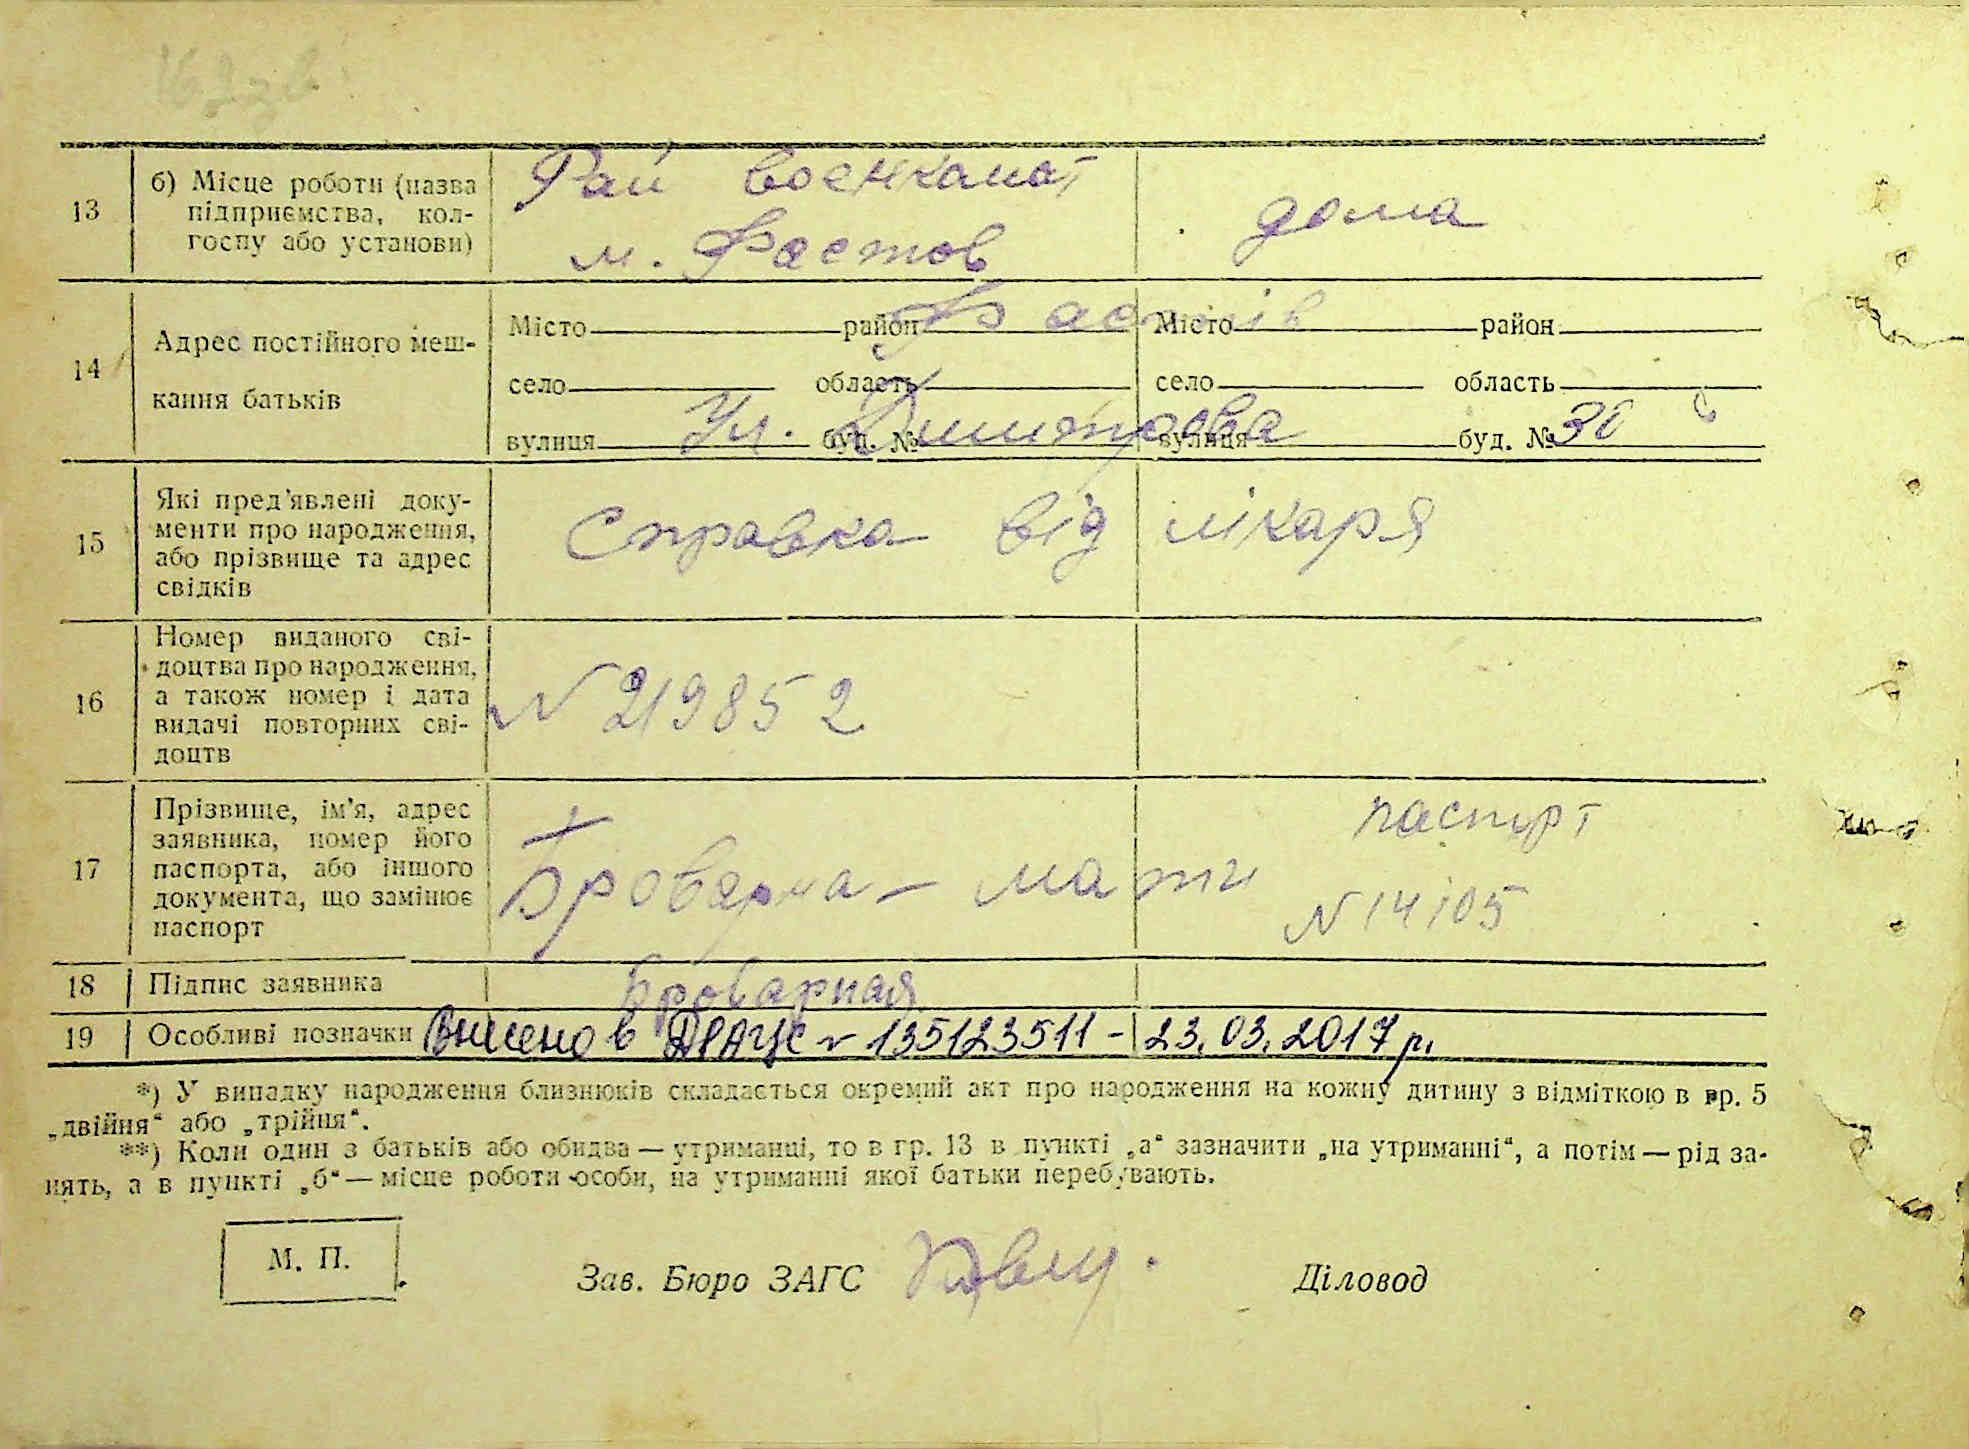 13
б) Місце роботи (назва
підприємства, кол-
госпу або установи)
Рай военкомат
м. Фастов
дома
14
Адрес постійного меш-
кання батьків
Фастів
Місто район Місто район
село область село область
вулиця Ул. буд. № Димитрова вулиця буд. №
15
Які пред'явлені доку-
менти про народження,
або прізвище та адрес
свідків
Справка від лікаря
16
Номер виданого сві-
доцтва про народження,
а також номер і дата
видачі повторних сві-
доцтв
N 219852
17
Прізвище, ім'я, адрес
заявника, номер його
паспорта, або іншого
документа, що замінює
паспорт
Броварна - мати
паспорт
N 14105
18 Підпис заявника Броварная
19 Особливі позначки Внесено в ДРАЦС N 135123511 - 23.03.2017 р.
*) У випадку народження близнюків складається окремий акт про народження на кожну дитину з відміткою в гр. 5
„двійня“ або „трійня“.
**) Коли один з батьків або обидва — утриманці, то в гр. 13 в пункті „а“ зазначити „на утриманні“, а потім — рід за-
нять, а в пункті „б“ — місце роботи особи, на утриманні якої батьки перебувають.
М. П.
Зав. Бюро ЗАГС
Діловод